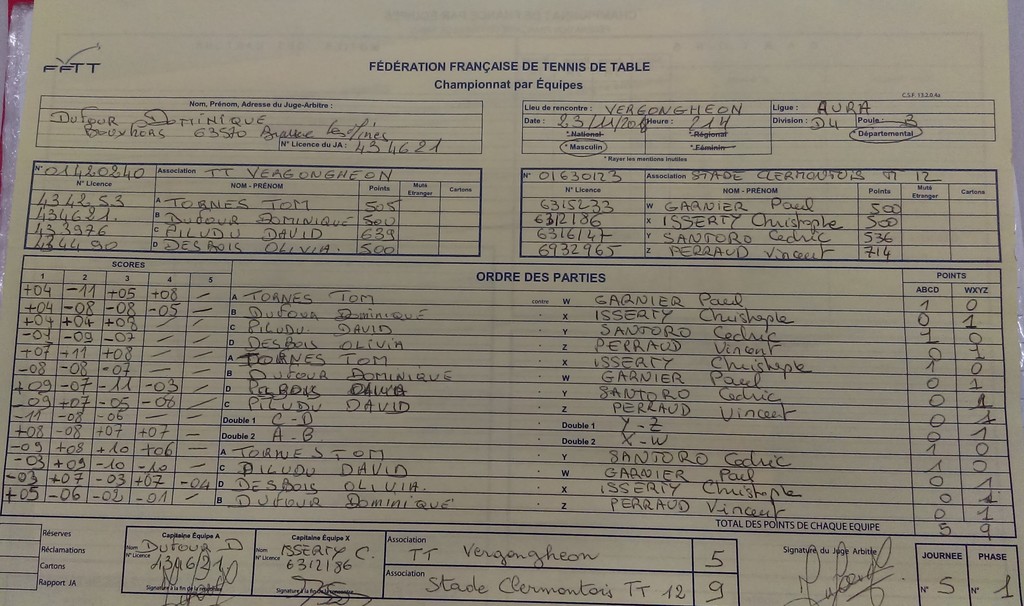 FFTT
FÉDÉRATION FRANÇAISE DE TENNIS DE TABLE
Championnat par Équipes
C.S.F. 13.2.0.4a
Nom, Prénom, Adresse du Juge-Arbitre :
DUFOUR DOMINIQUE
63570
N° Licence du JA : 434621
Lieu de rencontre : VERGONGHEON Ligue : AURA
Date : 23/11/ Heure : Division : D4 Poule : 3
National Régional Départemental
Masculin Féminin
* Rayer les mentions inutiles
N° 01420240 Association TT VERGONGHEON
N° Licence NOM - PRÉNOM Points Muté Etranger Cartons
434253 A TORNES TOM 505
434621. B DUFOUR DOMINIQUE 500
433976 C PILUDU DAVID 639
434490 D DESBOIS OLIVIA. 500
N° 01630123 Association STADE CLERMONTOIS TT 12
N° Licence NOM - PRÉNOM Points Muté Etranger Cartons
6315233 W GARNIER Paul 500
6312186 X ISSERTY Christophe 500
6316147 Y SANTORO Cedric 536
6932965 Z PERRAUD Vincent 714
SCORES ORDRE DES PARTIES POINTS
1 2 3 4 5 ABCD WXYZ
+04 -11 +05 +08 — A TORNES TOM contre W GARNIER Paul 1 0
+04 -08 -08 -05 — B DUFOUR Dominique X ISSERTY Christophe 0 1
+04 +04 +09 — — C PILUDU DAVID Y SANTORO Cedric 1 0
-07 -09 -07 — — D DESBOIS OLIVIA Z PERRAUD Vincent 0 1
+07 +11 +08 — — A TORNES TOM X ISSERTY Christophe 1 0
-08 -08 -07 — — B DUFOUR DOMINIQUE W GARNIER Paul 0 1
+09 -07 -11 -03 — D Y SANTORO Cedric 0 1
-09 +07 -05 -08 — C PILUDU DAVID Z PERRAUD Vincent 0 1
-11 -08 -06 — — Double 1 C - D Double 1 Y - Z 0 1
+08 -08 +07 +07 — Double 2 A - B Double 2 X - W 1 0
-09 +08 +10 +06 — A TORNES TOM Y SANTORO Cedric 1 0
-03 +09 -10 -10 — C PILUDU DAVID W GARNIER Paul 0 1
-03 +07 -03 +07 -04 D DESBOIS OLIVIA. X ISSERTY Christophe 0 1
+05 -06 -02 -01 — B DUFOUR Dominique Z PERRAUD Vincent 0 1
TOTAL DES POINTS DE CHAQUE EQUIPE 5 9
Réserves
Réclamations
Cartons
Rapport JA
Capitaine Équipe A
Nom DUFOUR D
N° Licence 434621
Signature à la fin de la rencontre
Capitaine Équipe X
Nom ISSERTY C.
N° Licence 6312186
Signature à la fin de la rencontre
Association
TT Vergongheon 5
Association
Stade Clermontois TT 12 9
Signature du Juge Arbitre
JOURNEE PHASE
N° 5 N° 1